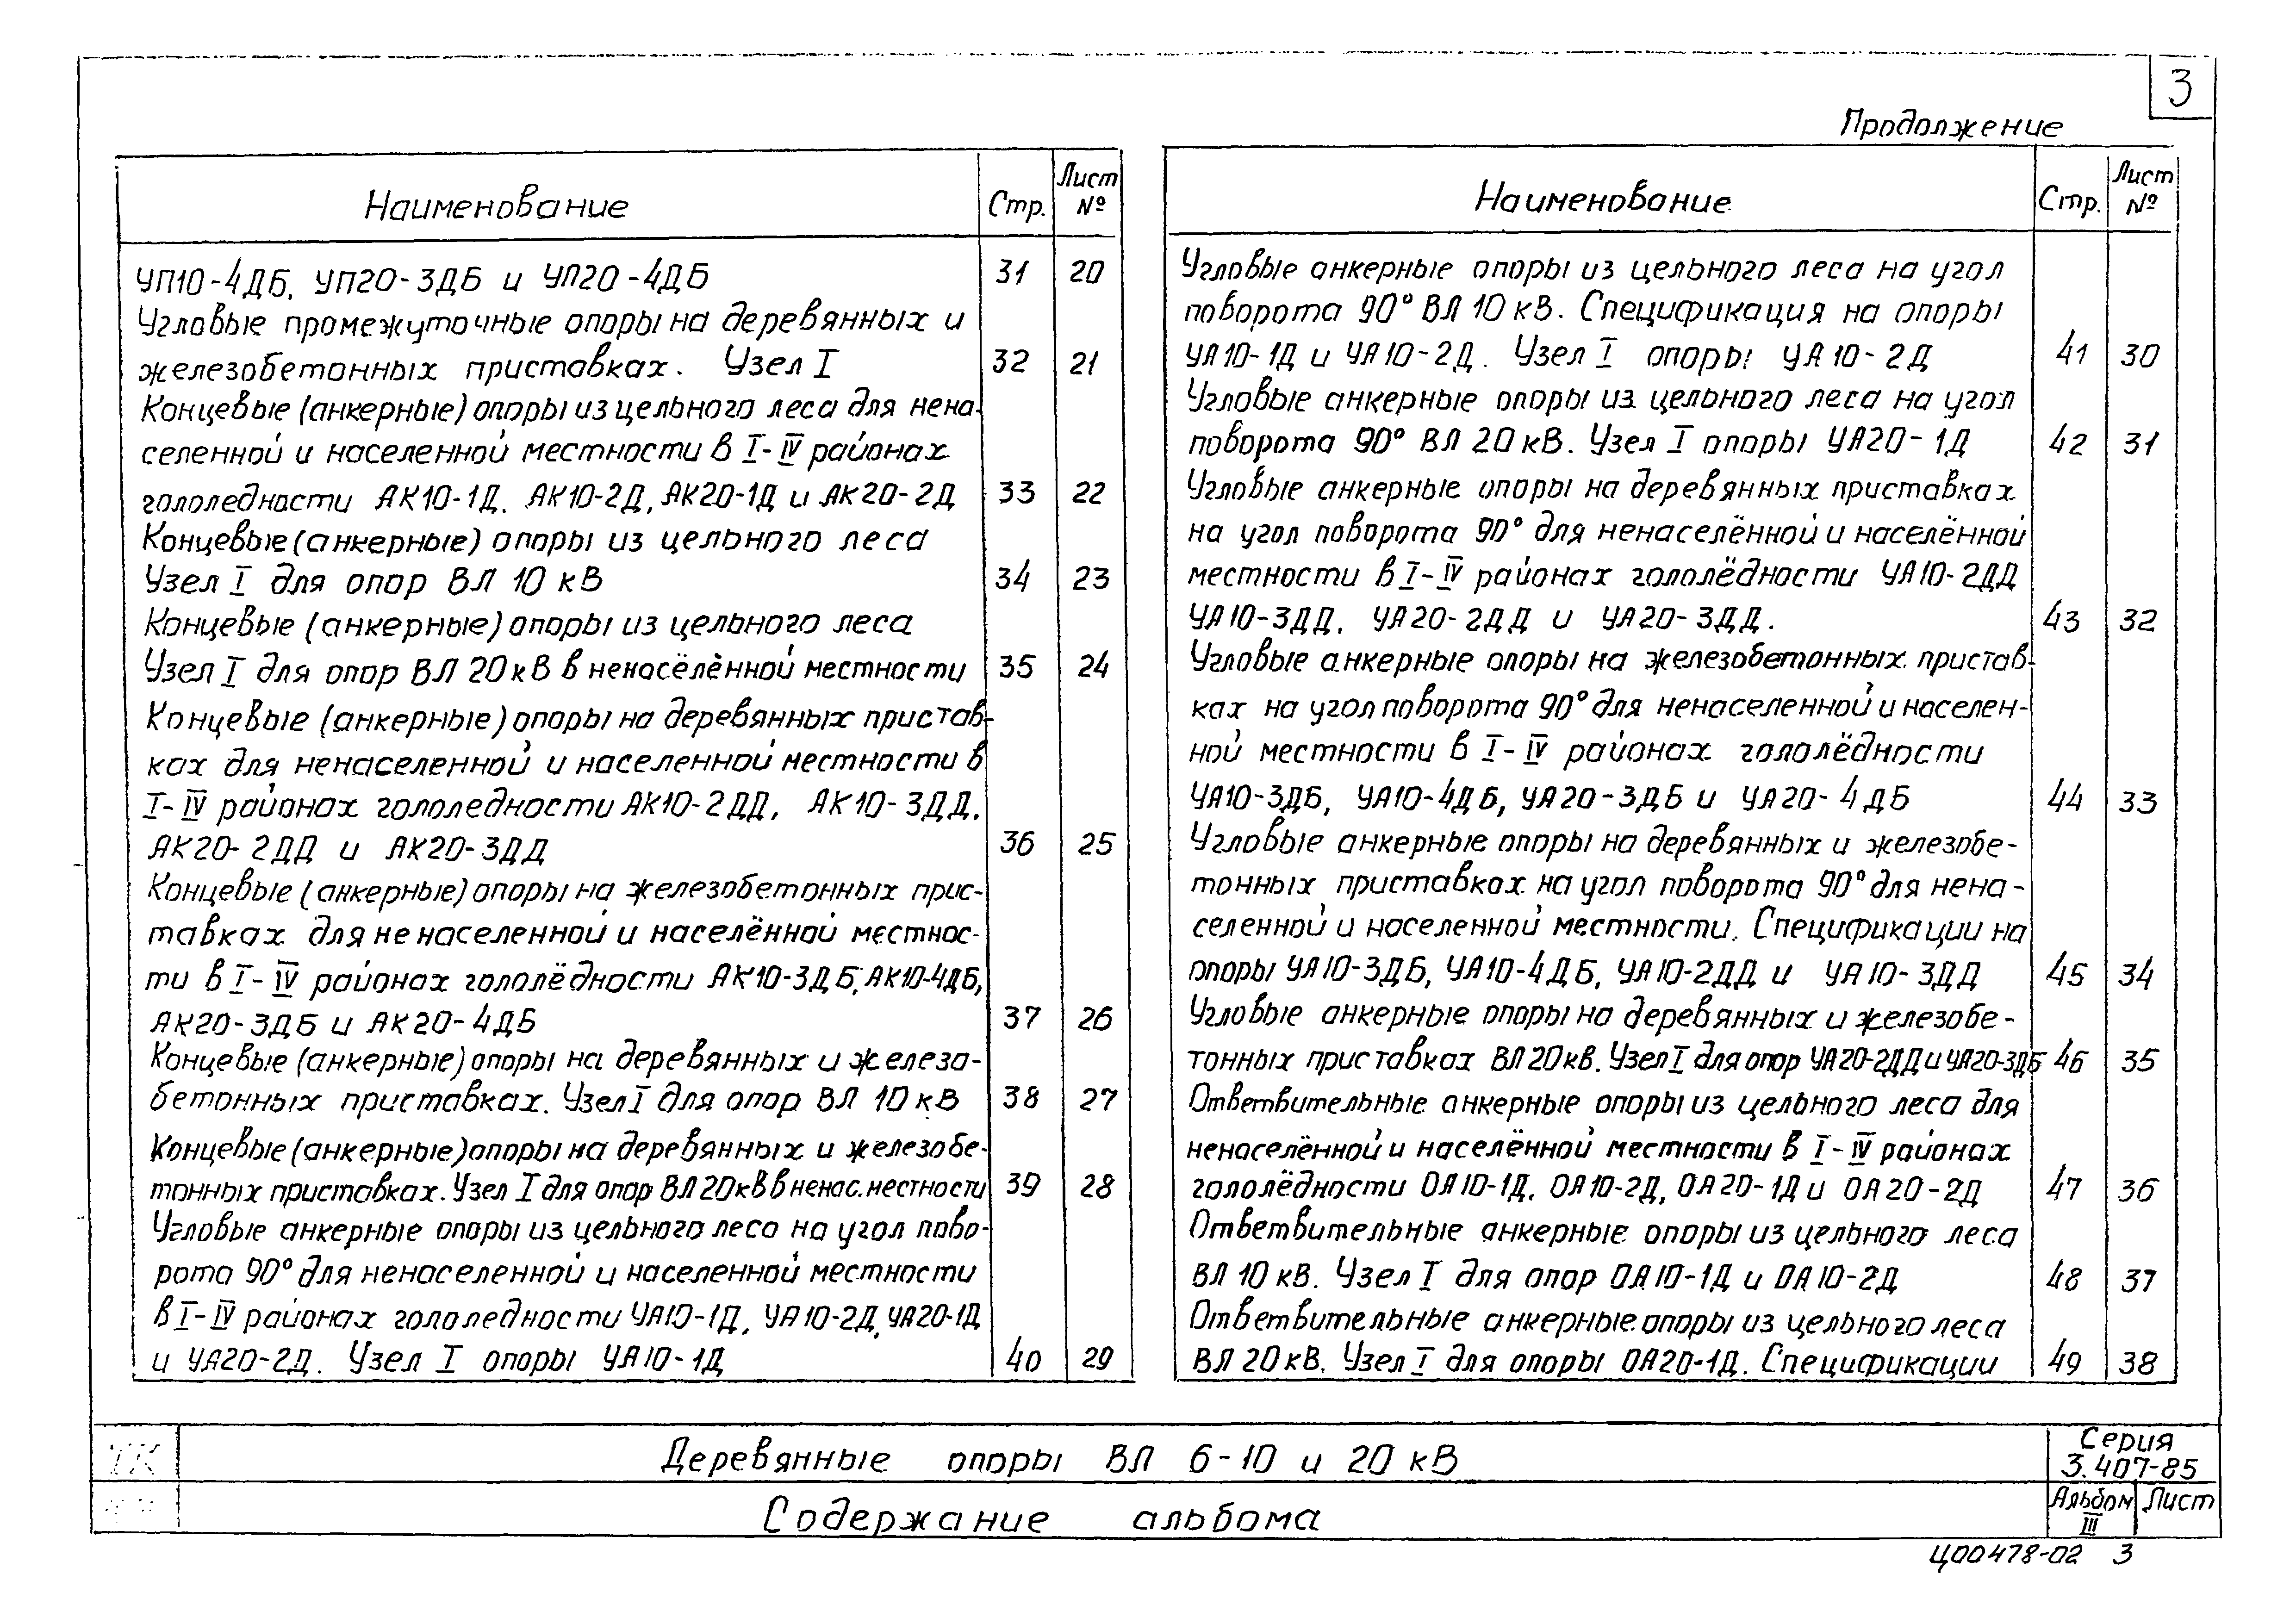 3
Продолжение
Наименование Стр. Лист №
УП10-4ДБ, УП20-3ДБ и УП20-4ДБ 31 20
Угловые промежуточные опоры на деревянных и
железобетонных приставках. Узел I 32 21
Концевые (анкерные) опоры из цельного леса для нена-
селенной и населенной местности в I-IV районах
гололедности АК10-1Д, АК10-2Д, АК20-1Д и АК20-2Д 33 22
Концевые (анкерные) опоры из цельного леса
Узел I для опор ВЛ 10 кВ 34 23
Концевые (анкерные) опоры из цельного леса
Узел I для опор ВЛ 20 кВ в ненаселённой местности 35 24
Концевые (анкерные) опоры на деревянных пристав-
ках для ненаселенной и населенной местности в
I-IV районах гололедности АК10-2ДД, АК10-3ДД,
АК20-2ДД и АК20-3ДД 36 25
Концевые (анкерные) опоры на железобетонных прис-
тавках для ненаселенной и населённой местнос-
ти в I-IV районах гололёдности АК10-3ДБ, АК10-4ДБ,
АК20-3ДБ и АК20-4ДБ 37 26
Концевые (анкерные) опоры на деревянных и железо-
бетонных приставках. Узел I для опор ВЛ 10 кВ 38 27
Концевые (анкерные) опоры на деревянных и железобе-
тонных приставках. Узел I для опор ВЛ 20кВ в ненас. местности 39 28
Угловые анкерные опоры из цельного леса на угол пово-
рота 90° для ненаселенной и населенной местности
в I-IV районах гололедности УА10-1Д, УА10-2Д, УА20-1Д
и УА20-2Д. Узел I опоры УА10-1Д 40 29
Наименование Стр. Лист №
Угловые анкерные опоры из цельного леса на угол
поворота 90° ВЛ 10 кВ. Спецификация на опоры
УА10-1Д и УА10-2Д. Узел I опоры УА10-2Д 41 30
Угловые анкерные опоры из цельного леса на угол
поворота 90° ВЛ 20 кВ. Узел I опоры УА20-1Д 42 31
Угловые анкерные опоры на деревянных приставках
на угол поворота 90° для ненаселённой и населённой
местности в I-IV районах гололёдности УА10-2ДД
УА10-3ДД, УА20-2ДД и УА20-3ДД. 43 32
Угловые анкерные опоры на железобетонных пристав-
ках на угол поворота 90° для ненаселенной и населен-
ной местности в I-IV районах гололёдности
УА10-3ДБ, УА10-4ДБ, УА20-3ДБ и УА20-4ДБ 44 33
Угловые анкерные опоры на деревянных и железобе-
тонных приставках на угол поворота 90° для нена-
селенной и населенной местности. Спецификации на
опоры УА10-3ДБ, УА10-4ДБ, УА10-2ДД и УА10-3ДД 45 34
Угловые анкерные опоры на деревянных и железобе-
тонных приставках ВЛ 20кВ. Узел I для опор УА20-2ДД и УА20-3ДБ 46 35
Ответвительные анкерные опоры из цельного леса для
ненаселённой и населённой местности в I-IV районах
гололёдности ОА10-1Д, ОА10-2Д, ОА20-1Д и ОА20-2Д 47 36
Ответвительные анкерные опоры из цельного леса
ВЛ 10 кВ. Узел I для опор ОА10-1Д и ОА10-2Д 48 37
Ответвительные анкерные опоры из цельного леса
ВЛ 20 кВ. Узел I для опоры ОА20-1Д. Спецификации 49 38
ТК
Деревянные опоры ВЛ 6-10 и 20 кВ
Серия
3.407-85
Содержание альбома
Альбом III
Лист
Ц00478-02 3